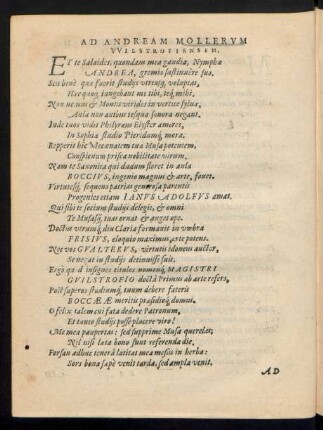 AD ANDREAM MOLLERVM
VVILSTROFIENSEM.
ET te Salaides, quondam mea gaudia, Nymphæ
ANDREA, gremio sustinuêre suo.
Scis benè quæ fuerit studijs utrisque voluptas,
Hæcque iungebant me tibi, teque mihi.
Non me und' & Montis virides in vertice sylua,
Aula non antiue tesqua sonora negant.
Inde tuos vidit Philyræus Elyster amores,
In Sophiæ studio Pieridumque, mera.
Repperit hic Mecœnatem tua Musa potentem,
Conspicuum prisca nobilitate virum.
Nam te Saxonica qui dudum floret in aula
BOCCIVS, ingenio magnus & arte, fouet.
Virtutesque sequens patrias generosa parentis
Progenies etiam IANVS ADOLFVS amat.
Qui sibi te socium studijs delegit, & omni
Te Musasque tuas ornat & auget ope.
Doctor utrumque diu Claria formauit in umbra
FRISIVS, eloquio maximus, arte potens.
Nec vos GVALTERVS, virtutis idoneus auctor,
Se negat in studijs detinuisse suis.
Ergò quòd insignes titulos nomenque MAGISTRI
GVILSTROFIO docta Primus ab arte refers,
Post superos studiumque tuum debere fateris
BOCCÆÆ meritis præsidioque domui.
O felix talem cui fata dedere Patronum,
Et tanto studijs posse placere viro!
O me mea paupertas: sed supprime Musa querelas;
Nil nisi læta bono sunt referenda die.
Forsan adhuc tenerâ latitat mea messis in herba:
Sors bona sæpè venit tarda, sed ampla venit.
AD